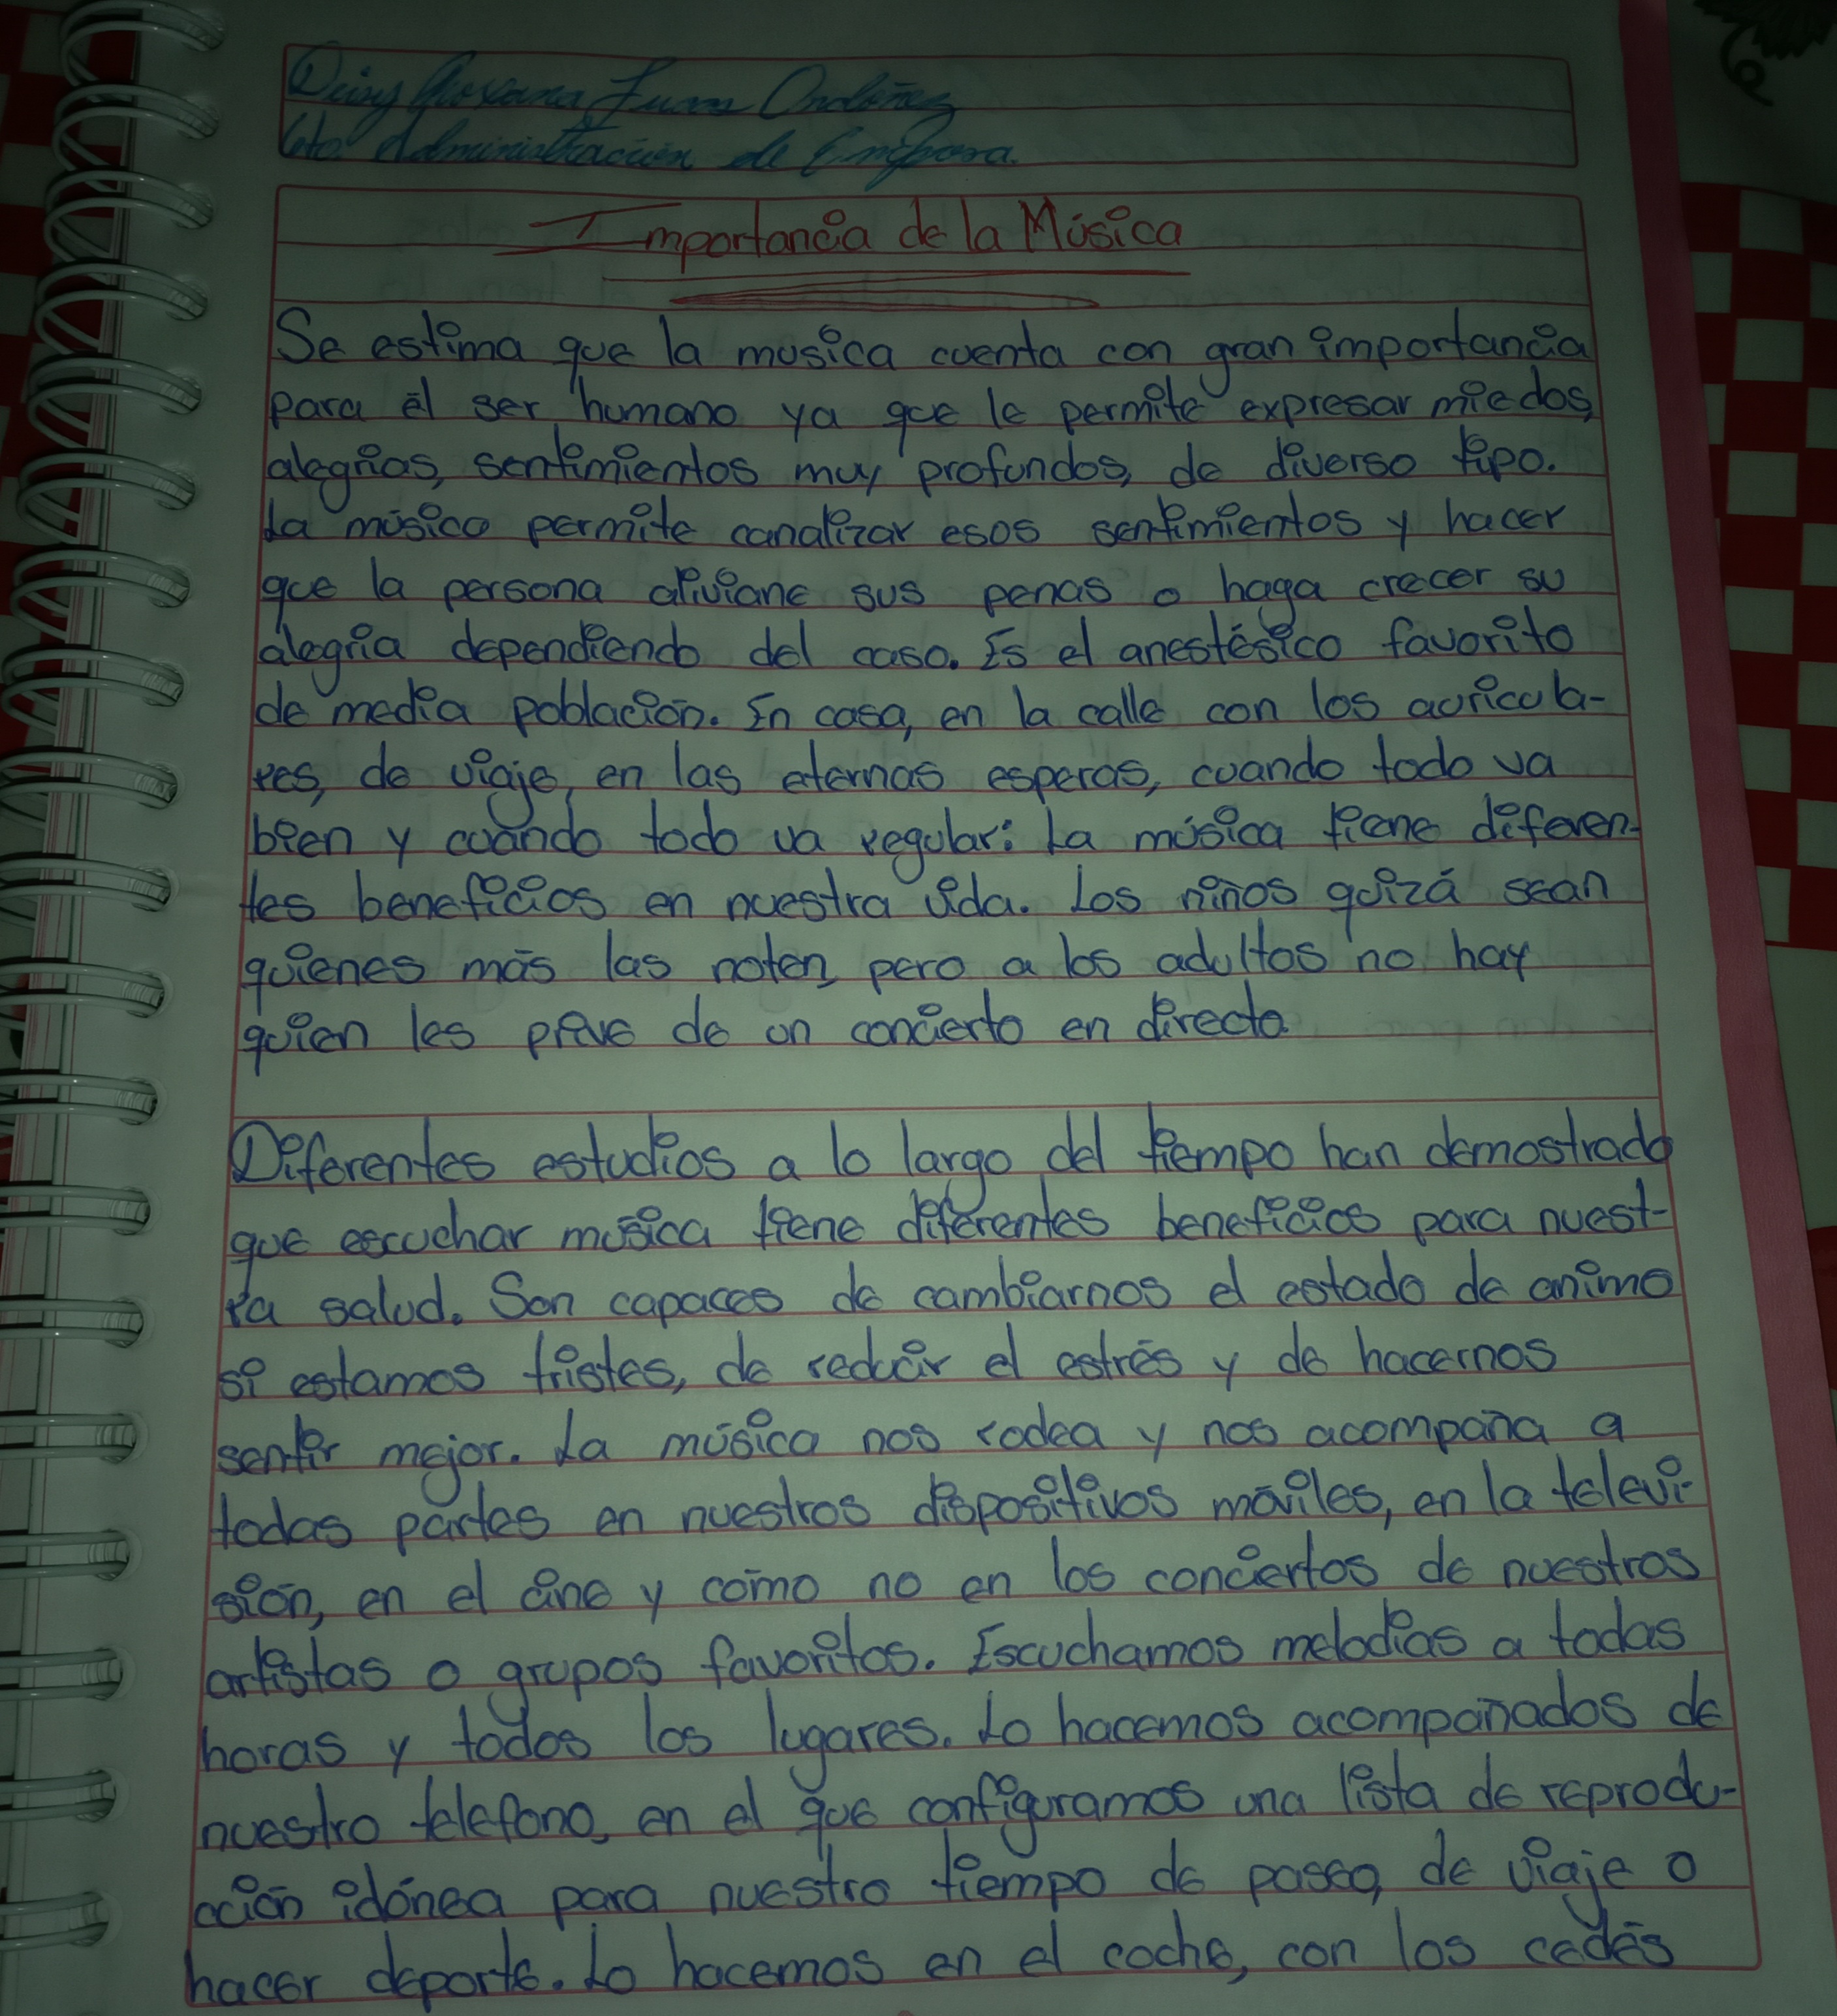 Deisy Roxana Juan Ordóñez
6to Administración de Empresa.
Importancia de la Música
Se estima que la música cuenta con gran importancia
para el ser humano ya que le permite expresar miedos,
alegrías, sentimientos muy profundos, de diverso tipo.
La música permite canalizar esos sentimientos y hacer
que la persona aliviane sus penas o haga crecer su
alegría dependiendo del caso. Es el anestésico favorito
de media población. En casa, en la calle con los auricula-
res, de viaje, en las eternas esperas, cuando todo va
bien y cuando todo va regular: La música tiene diferen-
tes beneficios en nuestra vida. Los niños quizá sean
quienes más las noten, pero a los adultos no hay
quien les prive de un concierto en directo.
Diferentes estudios a lo largo del tiempo han demostrado
que escuchar música tiene diferentes beneficios para nuest-
ra salud. Son capaces de cambiarnos el estado de animo
si estamos tristes, de reducir el estrés y de hacernos
sentir mejor. La música nos rodea y nos acompaña a
todas partes en nuestros dispositivos móviles, en la televi-
sión, en el cine y cómo no en los conciertos de nuestros
artistas o grupos favoritos. Escuchamos melodías a todas
horas y todos los lugares. Lo hacemos acompañados de
nuestro telefono, en el que configuramos una lista de reprodu-
cción idónea para nuestro tiempo de paseo, de viaje o
hacer deporte. Lo hacemos en el coche, con los cedés